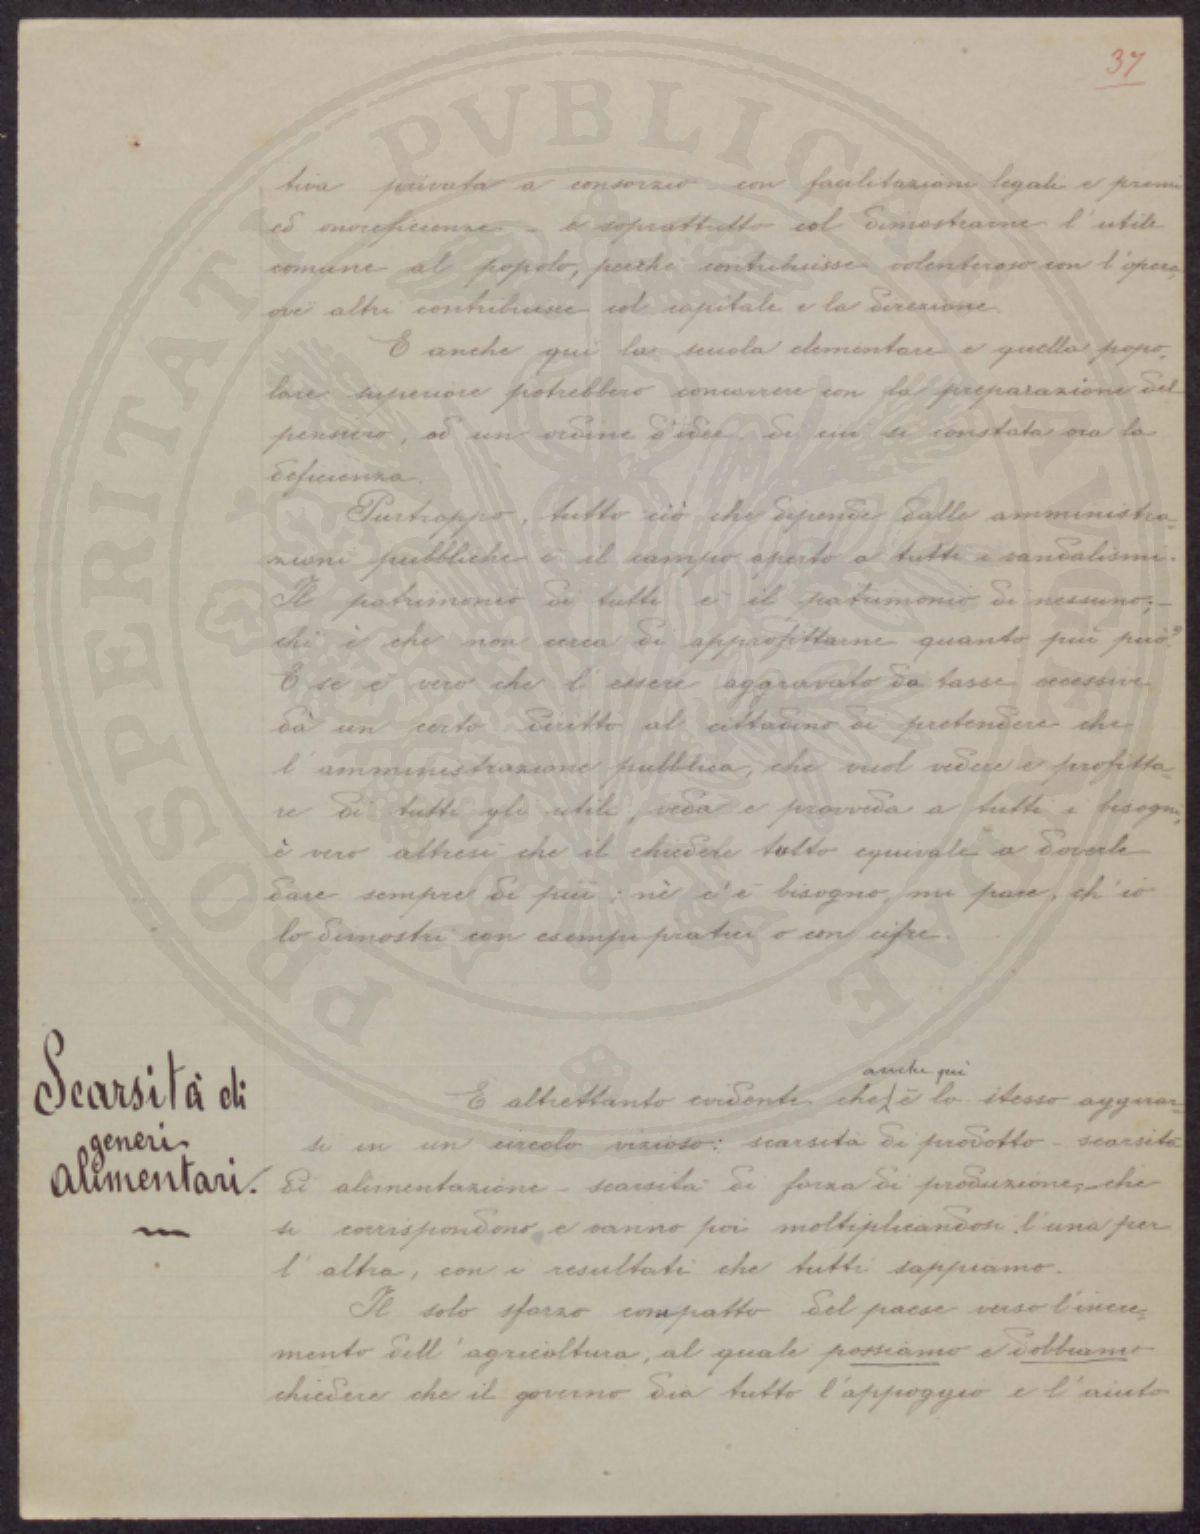 37
tiva privata a consorzio con facilitazioni legali e premi
ed onorificenze – e soprattutto col dimostrarne l'utile
comune al popolo, perché contribuisse volenteroso con l'opera,
ove altri contribuisce col capitale e la direzione.
E anche qui la scuola elementare e quella popo-
lare superiore potrebbero concorrere con la preparazione del
pensiero, ad un ordine d'idee di cui si constata ora la
deficienza.
Purtroppo, tutto ciò che dipende dalle amministra-
zioni pubbliche è il campo aperto a tutti i vandalismi.
Il patrimonio di tutti è il patrimonio di nessuno; –
chi è che non cerca di approfittarne quanto più può?
E se è vero che l'essere aggravato da tasse eccessive
dà un certo diritto al cittadino di pretendere che
l'amministrazione pubblica, che vuol vedere e profitta-
re di tutti gli utili, veda e provveda a tutti i bisogni,
è vero altresì che il chiedere tutto equivale a doverle
dare sempre di più; nè c'è bisogno, mi pare, ch'io
lo dimostri con esempi pratici o con cifre.
Scarsità di
generi
alimentari.
anche qui
È altrettanto evidente che è lo stesso aggirar-
si in un circolo vizioso: scarsità di prodotto – scarsità
di alimentazione – scarsità di forza di produzione, – che
si corrispondono e vanno poi moltiplicandosi l'una per
l'altra, con i resultati che tutti sappiamo.
Il solo sforzo compatto del paese verso l'incre-
mento dell'agricoltura, al quale possiamo e dobbiamo
chiedere che il governo dia tutto l'appoggio e l'aiuto
PROSPERITATI PVBLICAE AVGENDAE